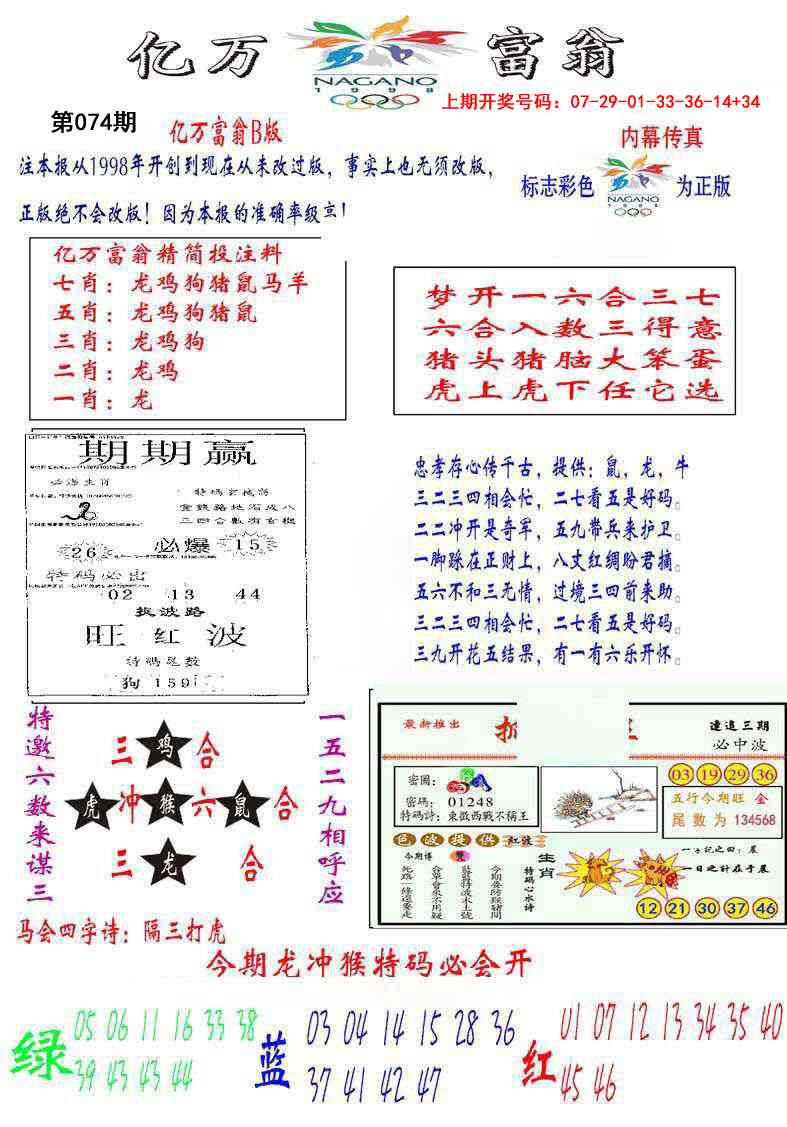 亿万富翁
NAGANO
1998
上期开奖号码：07-29-01-33-36-14+34
第074期
亿万富翁B版
内幕传真
注本报从1998年开创到现在从未改过版，事实上也无须改版，
标志彩色
NAGANO
1998
为正版
正版绝不会改版！因为本报的准确率级高！
亿万富翁精简投注料
七肖：龙鸡狗猪鼠马羊
五肖：龙鸡狗猪鼠
三肖：龙鸡狗
二肖：龙鸡
一肖：龙
梦开一六合三七
六合入数三得意
猪头猪脑大笨蛋
虎上虎下任它选
期期赢
必爆生肖
26
必爆
15
特码必出
02 13 44
捉波路
旺红波
特码尾数
狗159
忠孝存心传千古，提供：鼠，龙，牛
三二三四相会忙，二七看五是好码。
二二冲开是奇军，五九带兵来护卫。
一脚跺在正财上，八丈红绸盼君摘。
五六不和三无情，过境三四前来助。
三二三四相会忙，二七看五是好码。
三九开花五结果，有一有六乐开怀。
特邀六数来谋三
三鸡合
虎冲猴六鼠合
三龙合
一五二九相呼应
马会四字诗：隔三打虎
最新推出
連追三期
必中波
密圖：
密碼：01248
特碼詩：東徵西戰不稱王
03 19 29 36
五行今期旺 金
尾數为 134568
色波提供
紅波
今期博
雙
生肖
特碼心水诗
一日之計在于晨
12 21 30 37 46
今期龙冲猴特码必会开
绿
05 06 11 16 33 38
39 43 43 44
蓝
03 04 14 15 28 36
37 41 42 47
红
01 07 12 13 34 35 40
45 46